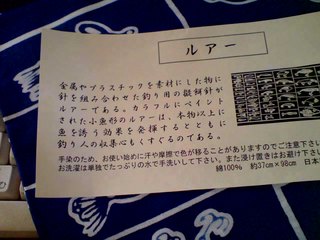 ルアー
金属やプラスチックを素材にした物に
針を組み合わせた釣り用の擬餌針が
ルアーである。カラフルにペイント
された小魚形のルアーは、本物以上に
魚を誘う効果を発揮するとともに
釣り人の収集心もくすぐるのである。
手染のため、お使い始めに汗や摩擦で色が移ることがありますのでご注意下さい
お洗濯は単独でたっぷりの水で手洗いして下さい。また浸け置きはお避け下さい
綿100% 約37cm×98cm 日本